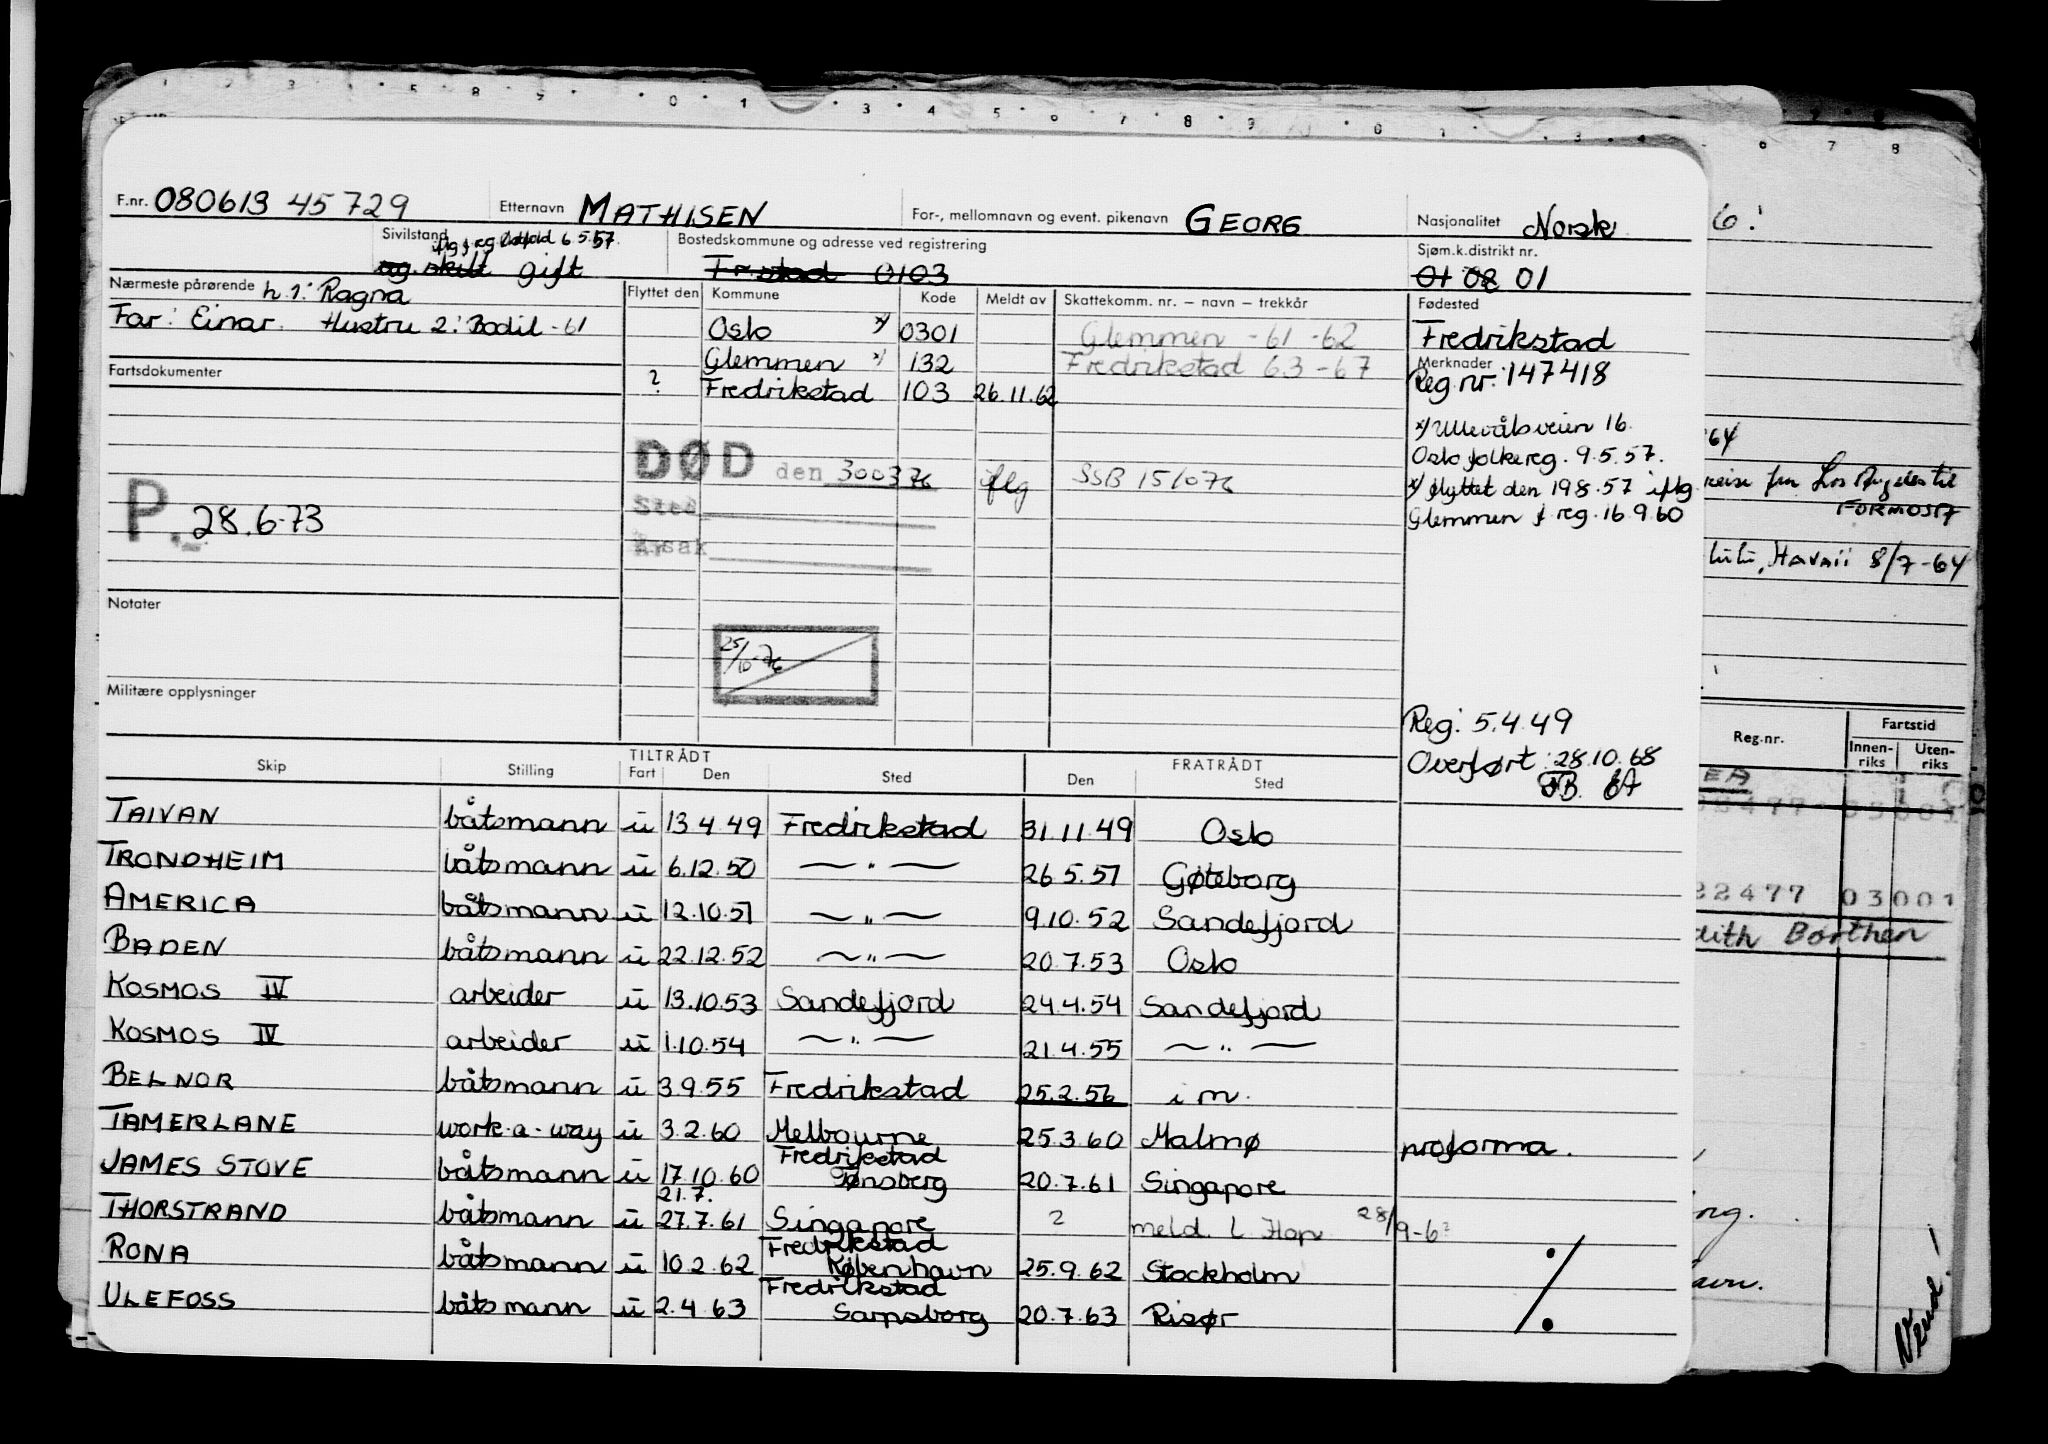 F.nr. 080613 45729 Etternavn MATHISEN For-, mellomnavn og event. pikenavn GEORG Nasjonalitet Norsk
Sivilstand 6.5.57. Bostedskommune og adresse ved registrering Sjøm.k.distrikt nr.
ug. skilt gift Fr.stad 0103 01 08 01
Nærmeste pårørende h. 1: Ragna Flyttet den Kommune Kode Meldt av Skattekomm. nr. – navn – trekkår Fødested
Far: Einar. Hustru 2: Bodil -61 Oslo x) 0301 Glemmen -61 -62 Fredrikstad
Glemmen x) 132 Fredrikstad 63-67 Merknader
Fartsdokumenter ? Fredrikstad 103 26.11.62 Reg.nr. 147418
x) Ullevålsveien 16.
Oslo folkereg. 9.5.57.
DØD den 300376 iflg SSB 151076
x) flyttet den 198.57 iflg
Glemmen f. reg. 16.9.60
P. 28.6.73
Sted
Årsak
Notater
25/10-76
Militære opplysninger
Reg: 5.4.49
Overført: 28.10.68
TILTRÅDT FRATRÅDT
Skip Stilling Fart Den Sted Den Sted
TAIVAN båtsmann u 13.4.49 Fredrikstad 31.11.49 Oslo
TRONDHEIM båtsmann u 6.12.50 — " — 26.5.51 Gøteborg
AMERICA båtsmann u 12.10.51 — " — 9.10.52 Sandefjord
BADEN båtsmann u 22.12.52 — " — 20.7.53 Oslo
KOSMOS IV arbeider u 13.10.53 Sandefjord 24.4.54 Sandefjord
KOSMOS IV arbeider u 1.10.54 — " — 21.4.55 — " —
BELNOR båtsmann u 3.9.55 Fredrikstad 25.2.56 i m.
TAMERLANE work-a-way u 3.2.60 Melbourne 25.3.60 Malmø proforma.
JAMES STOVE båtsmann u 17.10.60 Fredrikstad Tønsberg 20.7.61 Singapore
THORSTRAND båtsmann u 21.7. 27.7.61 Singapore ? meld. L Hop 28/9-6?
RONA båtsmann u 10.2.62 Fredrikstad København 25.9.62 Stockholm
ULEFOSS båtsmann u 2.4.63 Fredrikstad Sarpsborg 20.7.63 Risør
6!
64
reise fra Los Angeles til
FORMOSA
lulu, Havaii 8/7-64
Reg.nr. Fartstid
Innen-riks Uten-riks
22477 03001
dith Borthen